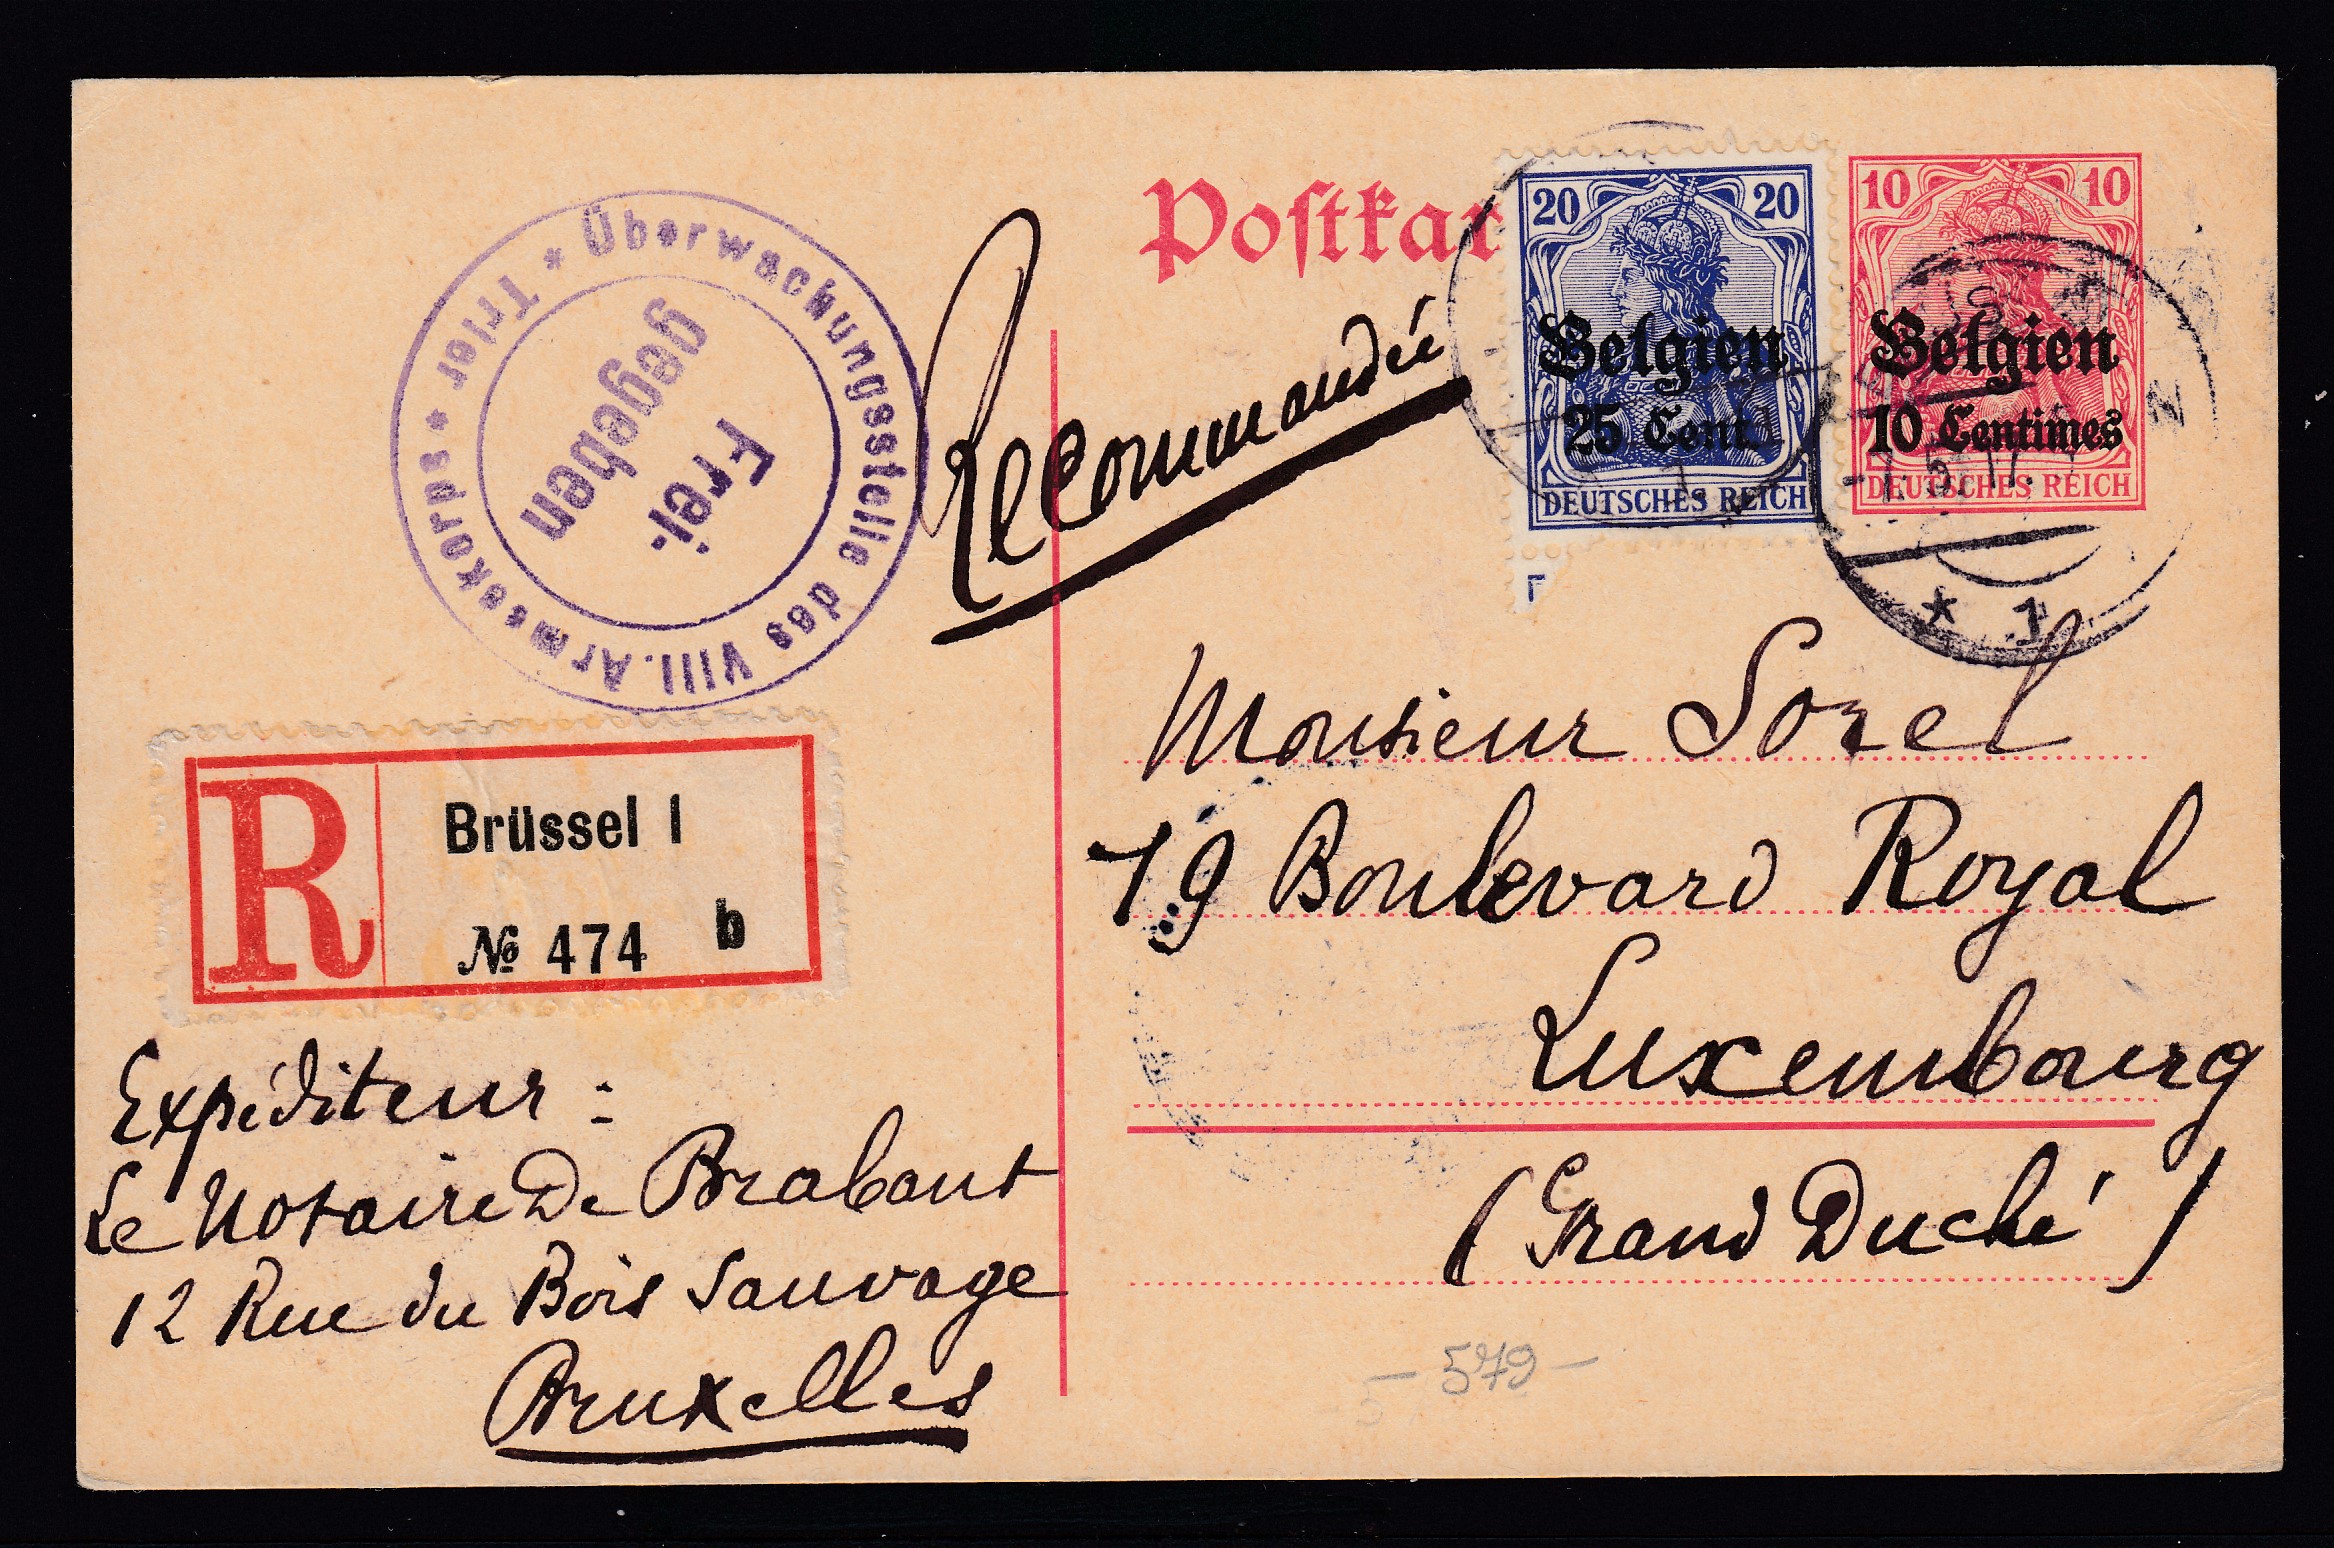 Postkar
20 20
Belgien
25 Cent.
DEUTSCHES REICH
10 10
Belgien
10 Centimes
DEUTSCHES REICH
* 1
Überwachungsstelle des VIII. Armeekorps * Trier *
Frei.
gegeben
Recommandée
R
Brüssel 1
№ 474 b
Monsieur Sorel
19 Boulevard Royal
Luxembourg
(Grand Duché)
Expéditeur :
Le Notaire De Brabant
12 Rue du Bois Sauvage
Bruxelles
- 579 -